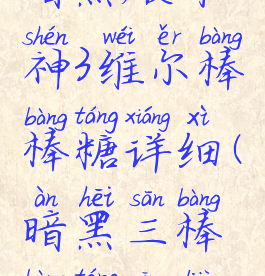 shén wéi ěr bàng
神3维尔棒
bàng táng xiáng xì
棒糖详细(
àn hēi sān bàng
暗黑三棒